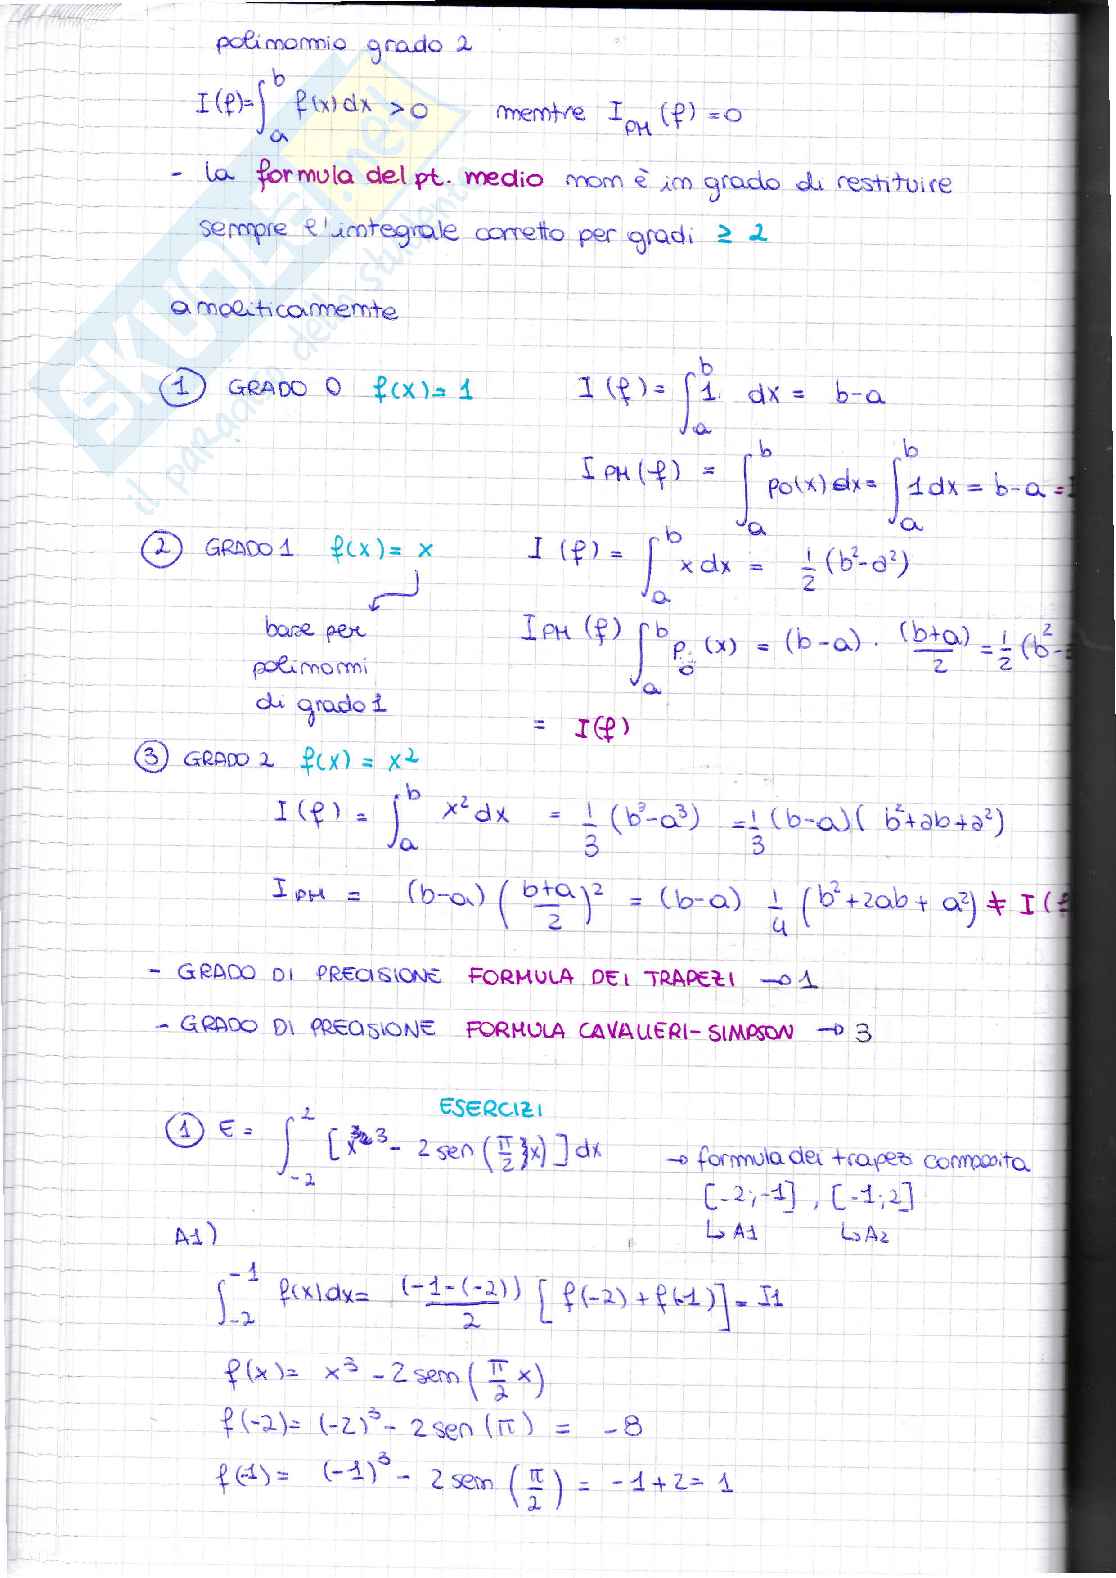 polinomio grado 2
I(f)=∫_a^b f(x)dx > 0 mentre I_PM(f) = 0
- la formula del pt. medio non è in grado di restituire
sempre l'integrale corretto per gradi ≥ 2
analiticamente
① GRADO 0 f(x)= 1 I(f) = ∫_a^b 1 dx = b-a
I_PM(f) = ∫_a^b p0(x)dx = ∫_a^b 1dx = b-a =
② GRADO 1 f(x)= x I(f) = ∫_a^b x dx = 1/2 (b²-a²)
base per
polinomi
di grado 1
I_PM(f) ∫_a^b p_0(x) = (b-a) · (b+a)/2 = 1/2 (b²-
= I(f)
③ GRADO 2 f(x) = x²
I(f) = ∫_a^b x²dx = 1/3 (b³-a³) = 1/3 (b-a)(b²+ab+a²)
I_PM = (b-a) ((b+a)/2)² = (b-a) 1/4 (b²+2ab+a²) ≠ I(f
- GRADO DI PRECISIONE FORMULA DEI TRAPEZI → 1
- GRADO DI PRECISIONE FORMULA CAVALIERI-SIMPSON → 3
ESERCIZI
① E = ∫_-2^2 [x³ - 2sen(π/2 x)]dx → formula dei trapezi composita
[-2;-1], [-1;2]
↳ A1 ↳ A2
A1)
∫_-2^-1 f(x)dx = (-1-(-2))/2 [f(-2)+f(-1)] = I1
f(x)= x³ - 2sen(π/2 x)
f(-2)= (-2)³ - 2sen(π) = -8
f(-1)= (-1)³ - 2sen(π/2) = -1+2 = 1
il paradiso dello studente
SKUOLA.net